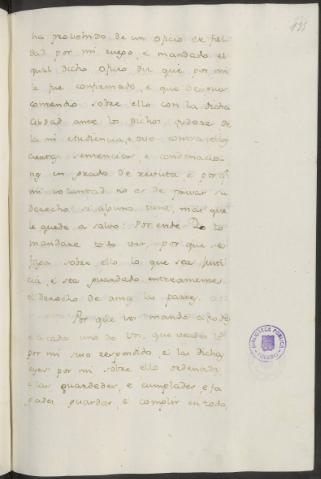 ha probeido de un oficio de fiel
dad por mi suego, e mandado el
qual dicho oficio diz que por mi
le fue confirmado, e que
contendio sobre ello con la dicha
cibdad ante los dichos oidores de
la mi audiencia, e ovo contra ellos
ciertas sentencias e condenacio
en grado de revista, e por q
mi voluntad no es de quitar su
derecho si alguno tiene, mas que
le quede a salvo: Por ende Yo lo
mandare todo ver, por que se
faga sobre ello lo que sea justi
cia, e sea guardado enteramente
el derecho de amas las partes.
Por que vos mando a todos
e a cada uno de vos, que veades lo
por mi suso respondido, e las dichas
leyes por mi sobre ello ordenadas
e las guardedes, e cumplades, e fa
gades guardar, e complir en todo,
BIBLIOTECA PUBLICA
TOLEDO